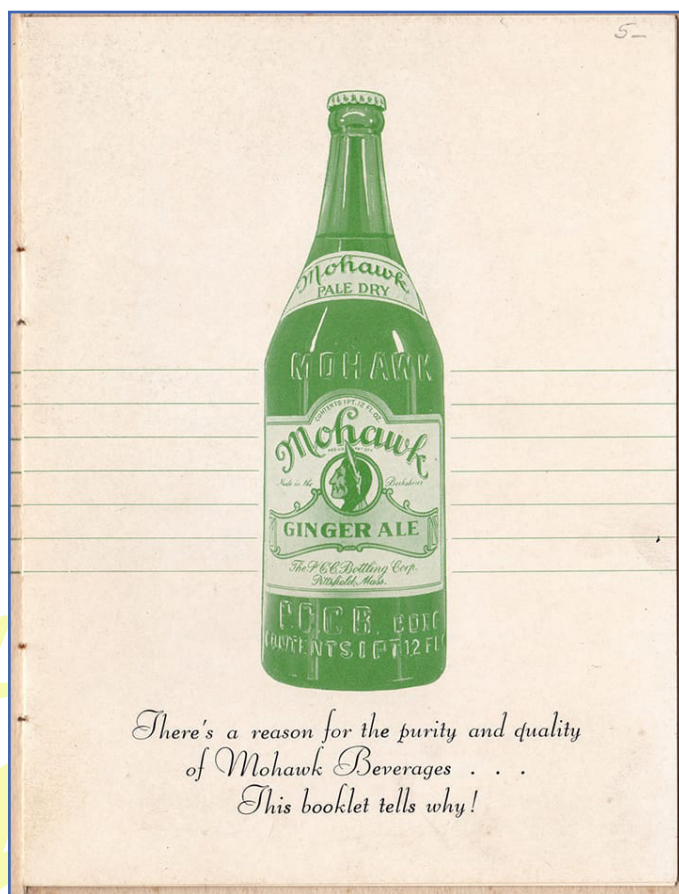 5–
Mohawk
PALE DRY
MOHAWK
CONTENTS 1 PT. 12 FL. OZ.
Mohawk
Made in the Berkshires
GINGER ALE
The P.C.C. Bottling Corp.
Pittsfield, Mass.
P.C.C.B. CORP
CONTENTS 1 PT 12 FL
There's a reason for the purity and quality
of Mohawk Beverages . . .
This booklet tells why!